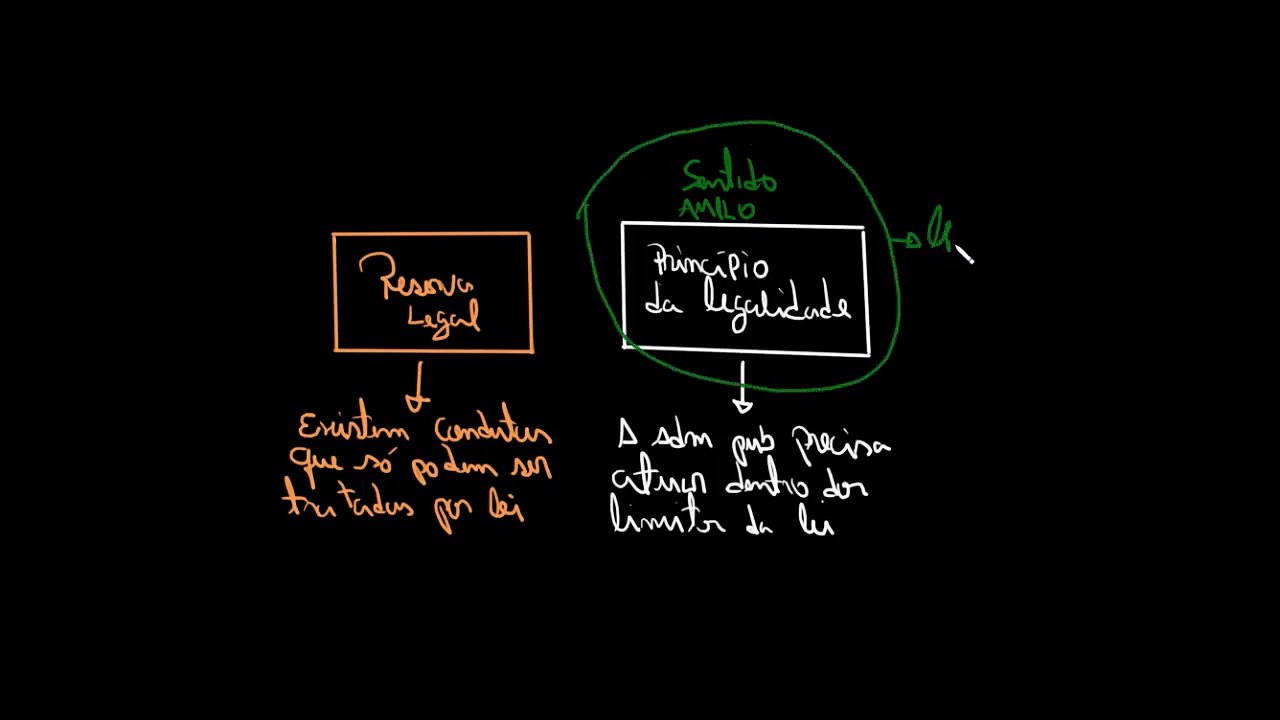 Reserva
Legal
Existem condutas
que só podem ser
tratadas por lei
Sentido
AMPLO
Princípio
da legalidade
A adm pub precisa
atuar dentro dos
limites da lei